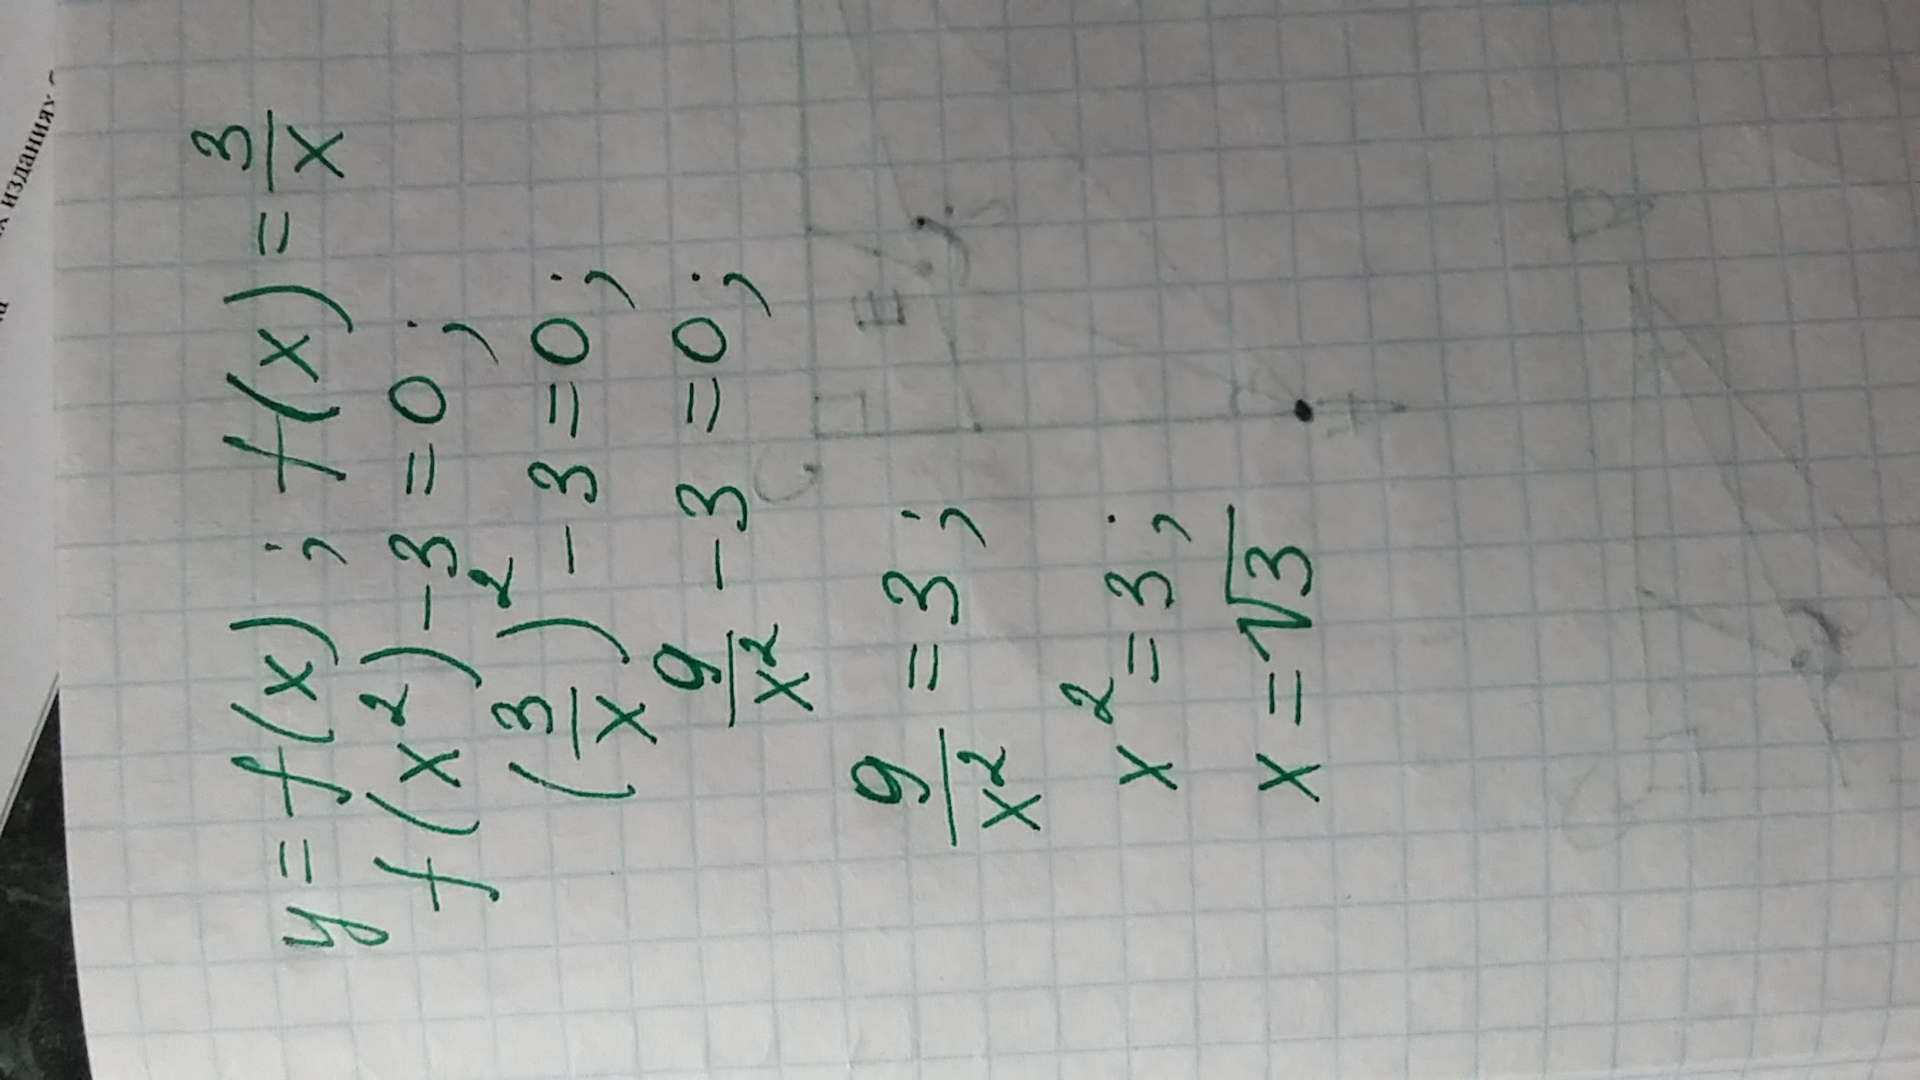 y = f(x); f(x) = 3/x
f(x²) - 3 = 0;
(3/x)² - 3 = 0;
9/x² - 3 = 0;
9/x² = 3;
x² = 3;
x = √3
изданиях
C
E
F
D